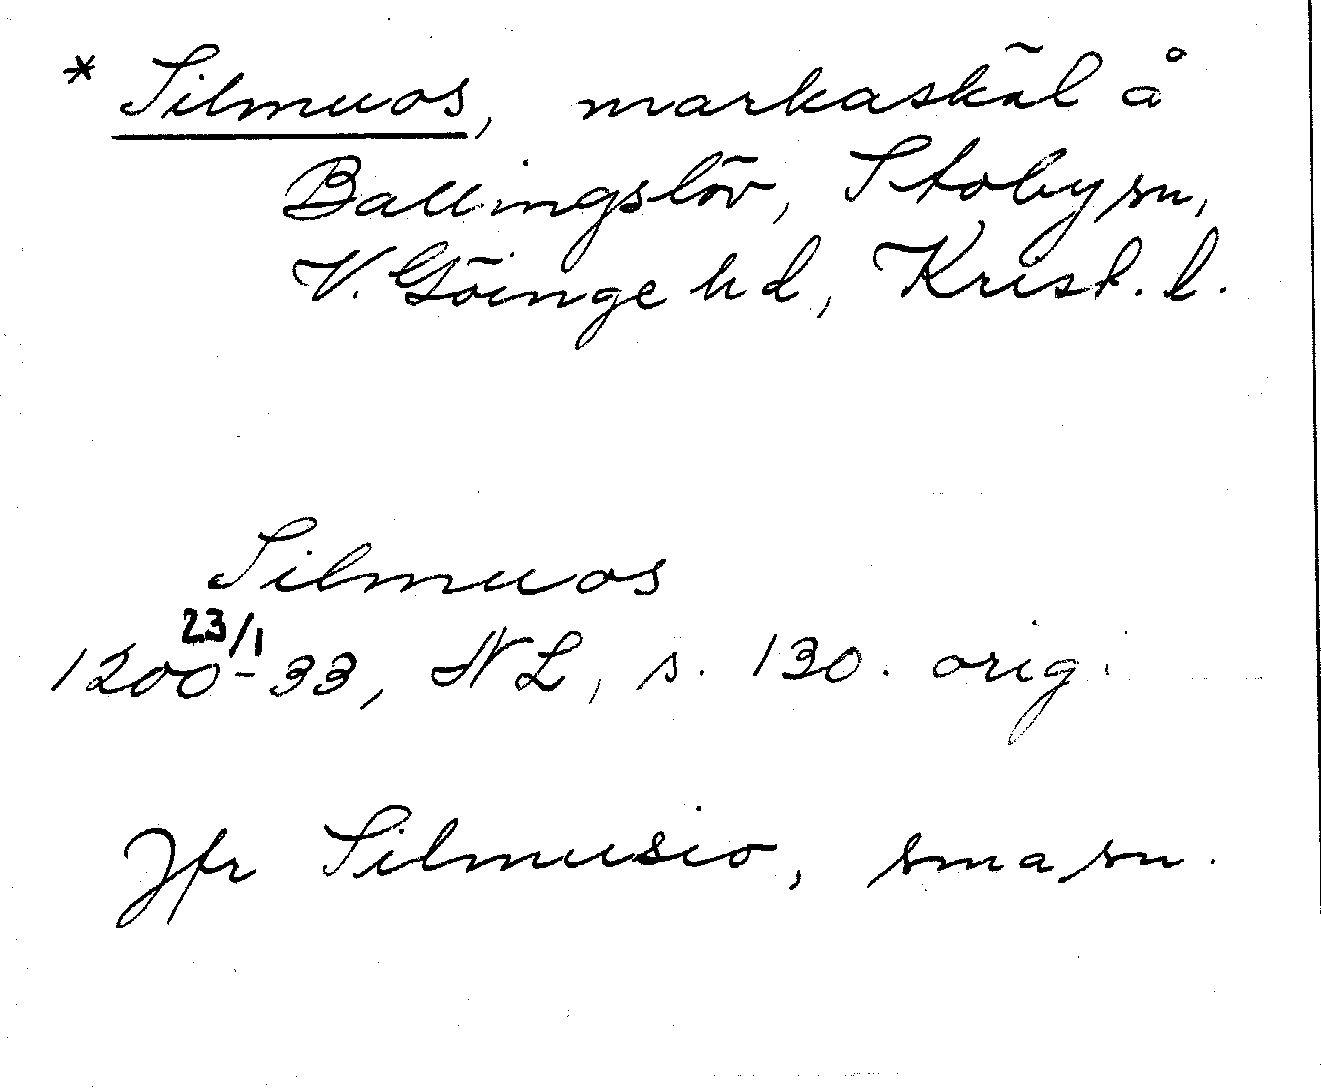 * Silmuos, markaskäl å
Ballingslöv, Stoby sn,
V. Göinge hd, Krist. l.
Silmuos
23/1
1200-33, NL, s. 130. orig.
Jfr Silmusio, smasn.